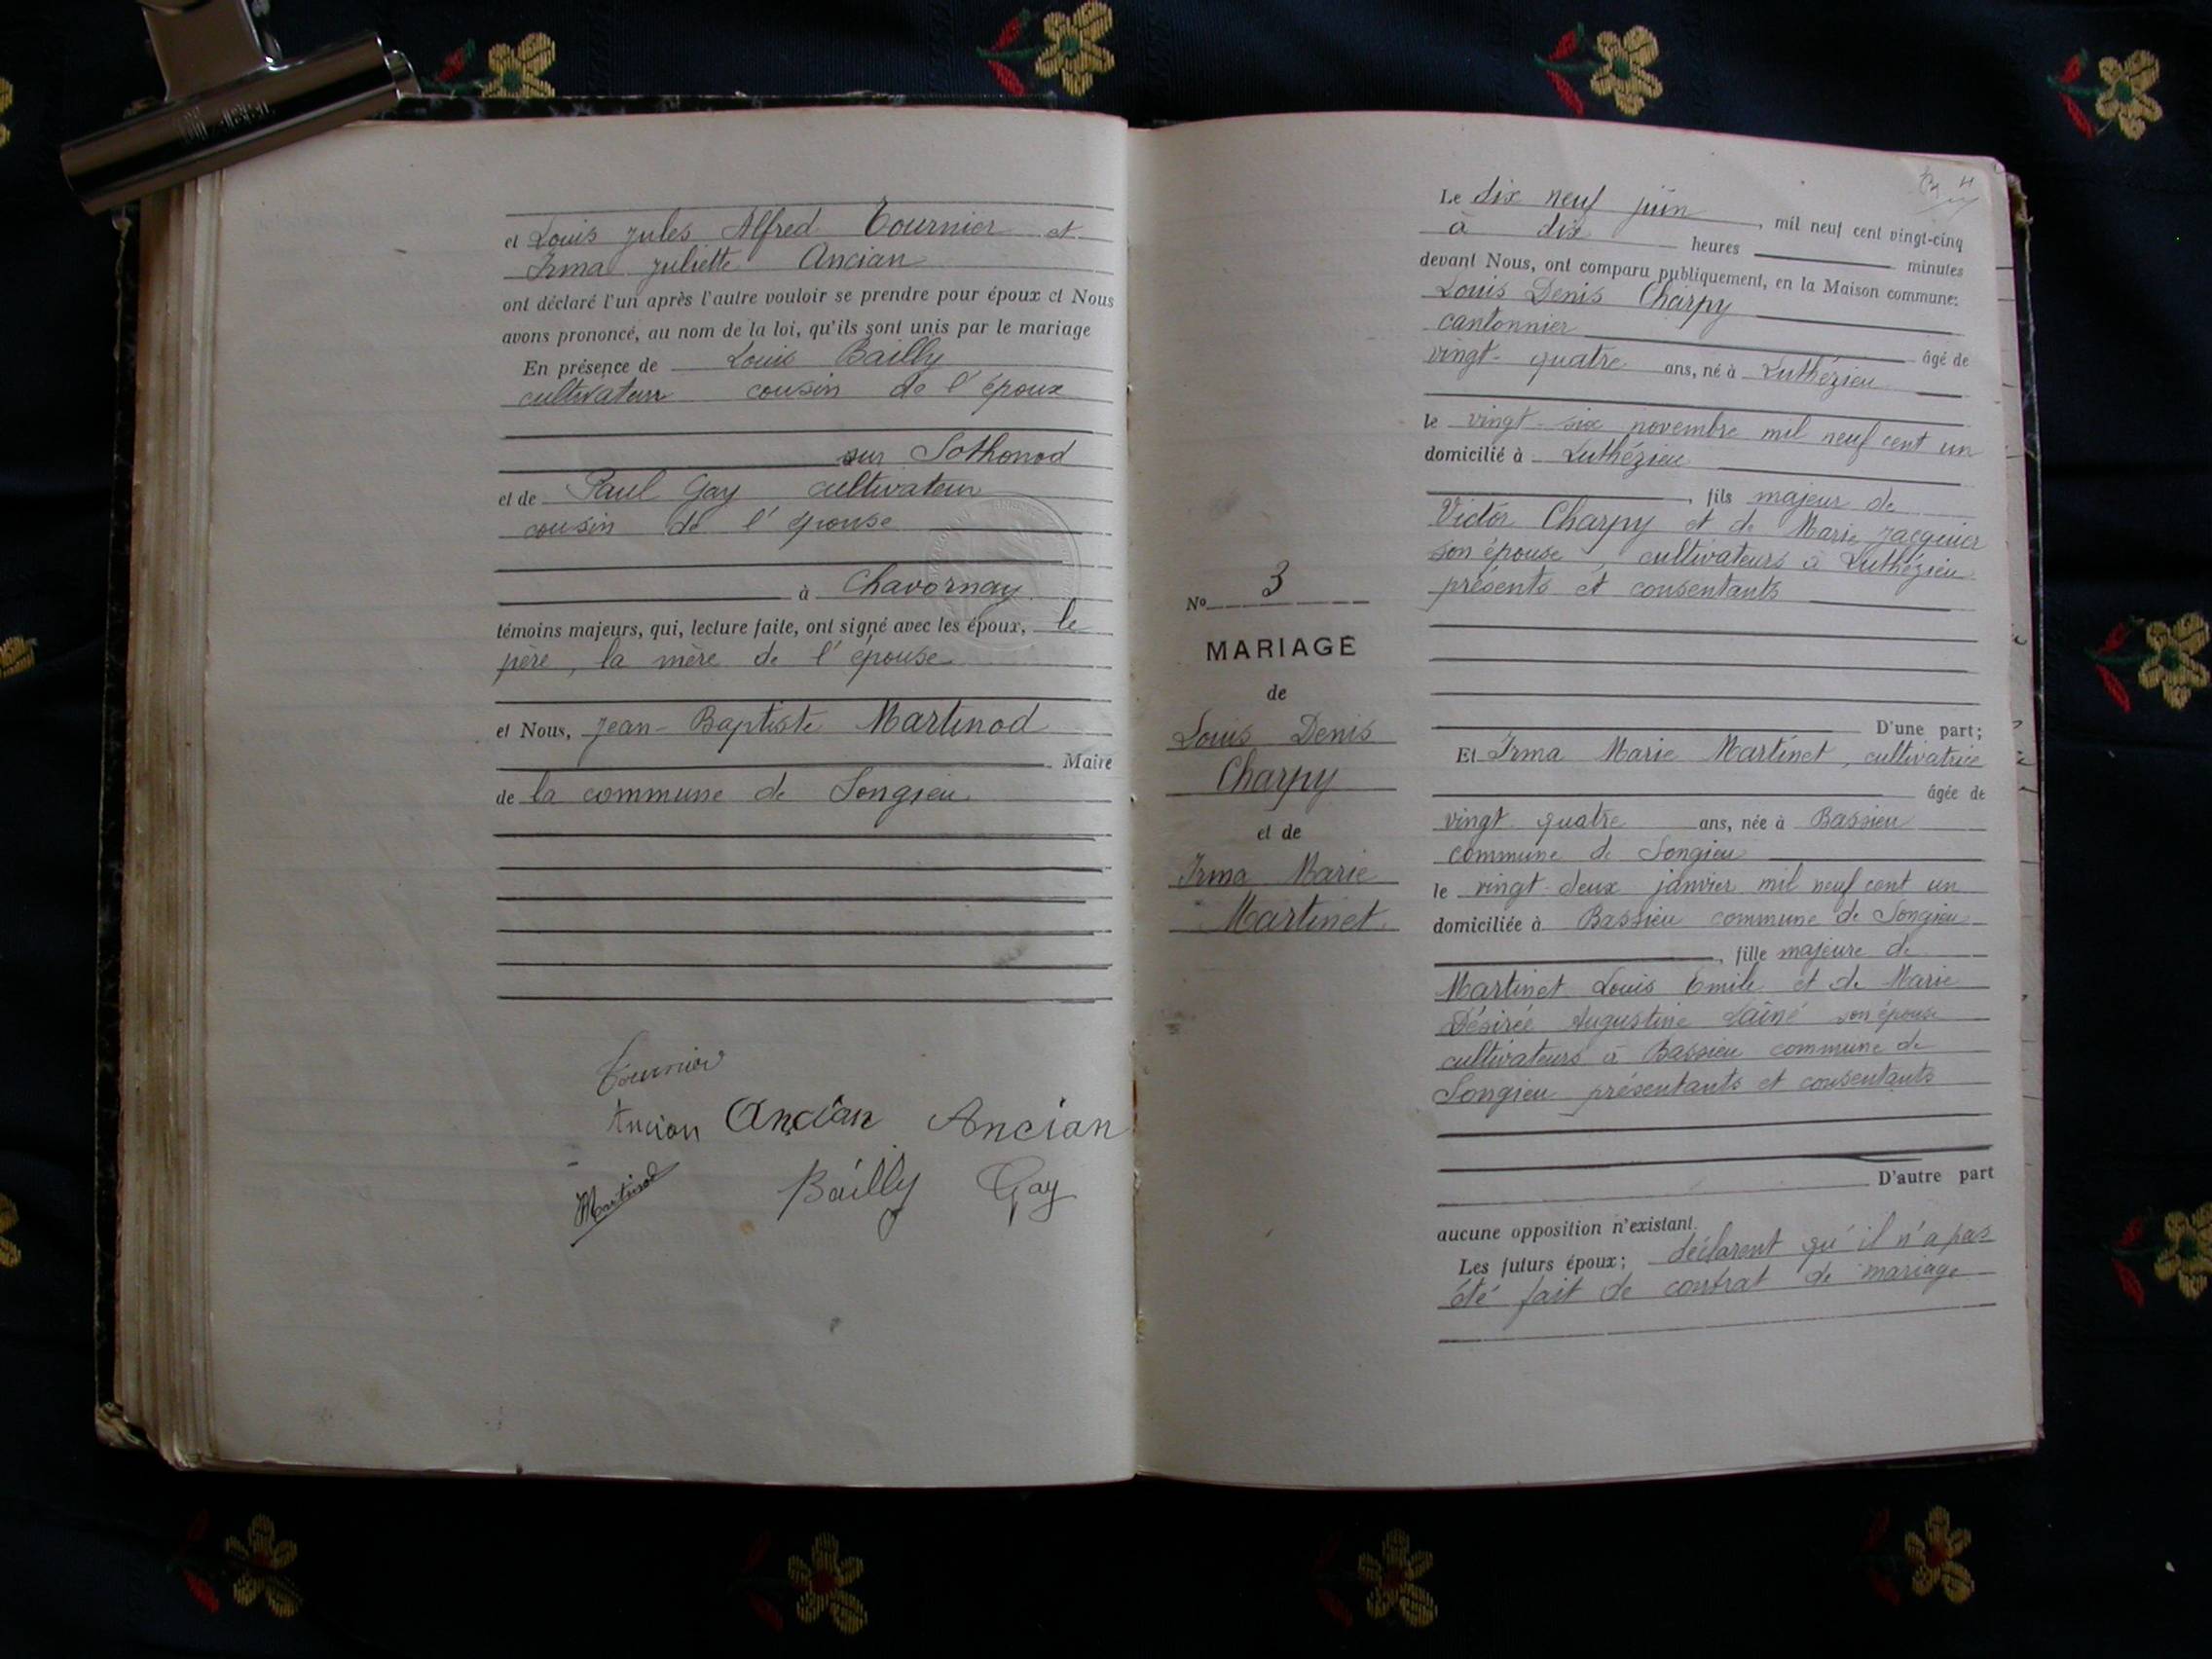 et Louis Jules Alfred Tournier et
Irma Juliette Ancian
ont déclaré l'un après l'autre vouloir se prendre pour époux et Nous
avons prononcé, au nom de la loi, qu'ils sont unis par le mariage
En présence de Louis Bailly
cultivateur cousin de l'époux
sur Sothonod
et de Paul Gay cultivateur
cousin de l'épouse
à Chavornay
témoins majeurs, qui, lecture faite, ont signé avec les époux, le
père, la mère de l'épouse
et Nous, Jean-Baptiste Martinod
Maire
de la commune de Songieu
Tournier
Ancian Ancian Ancian
Martinod Bailly Gay
No 3
MARIAGE
de
Louis Denis
Charpy
et de
Irma Marie
Martinet
Le dix neuf juin, mil neuf cent vingt-cinq
à dix heures minutes
devant Nous, ont comparu publiquement, en la Maison commune:
Louis Denis Charpy
cantonnier
âgé de
vingt-quatre ans, né à Luthézieu
le vingt-six novembre mil neuf cent un
domicilié à Luthézieu
, fils majeur de
Victor Charpy et de Marie Jacquier
son épouse, cultivateurs à Luthézieu
présents et consentants
D'une part;
Et Irma Marie Martinet, cultivatrice
âgée de
vingt quatre ans, née à Bassieu
commune de Songieu
le vingt-deux janvier mil neuf cent un
domiciliée à Bassieu commune de Songieu
, fille majeure de
Martinet Louis Emile et de Marie
Désirée Augustine Lainé son épouse
cultivateurs à Bassieu commune de
Songieu présentants et consentants
D'autre part
aucune opposition n'existant.
Les futurs époux; déclarent qu'il n'a pas
été fait de contrat de mariage